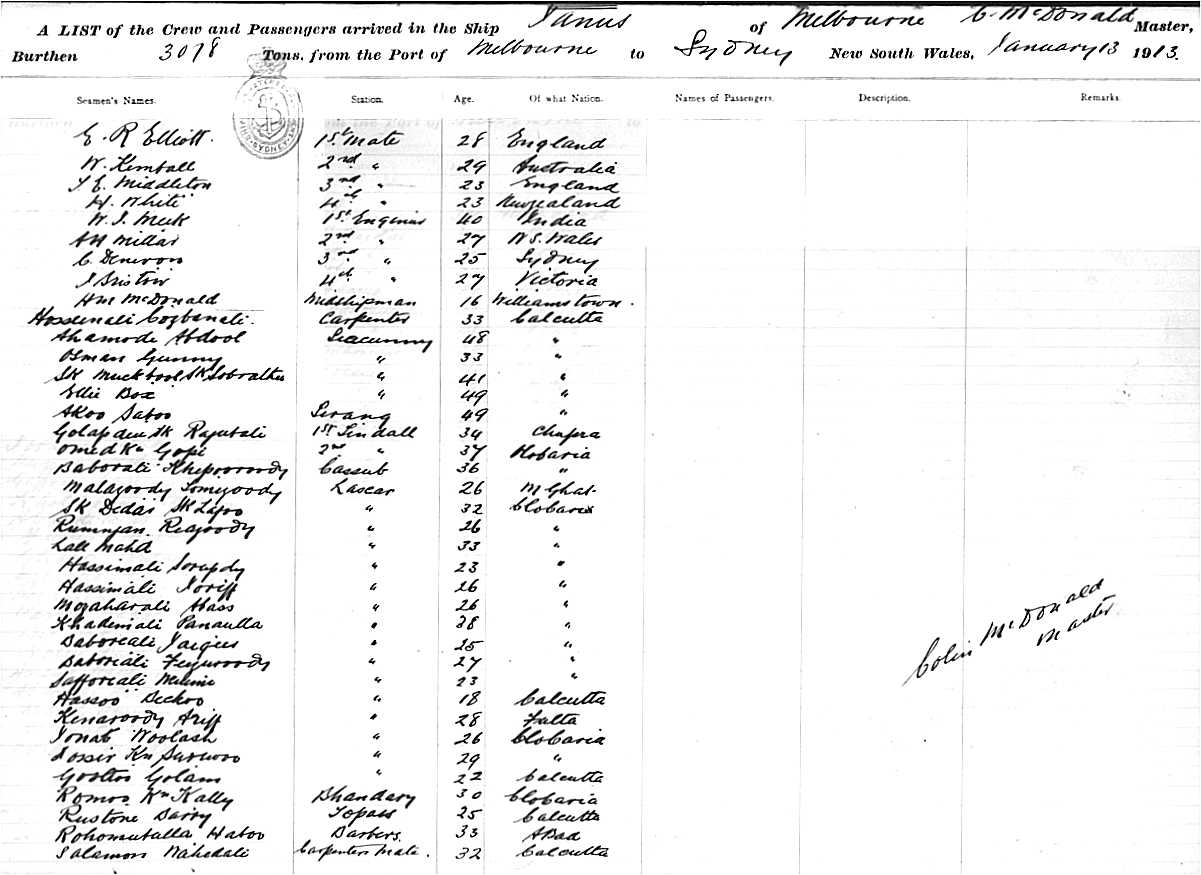 A LIST of the Crew and Passengers arrived in the Ship Janus of Melbourne C. McDonald Master,
Burthen 3078 Tons, from the Port of Melbourne to Sydney New South Wales, January 13 1913.
Seamen's Names. Station. Age. Of what Nation. Names of Passengers. Description. Remarks.
E. R Elliott. 1st Mate 28 England
W. Kemball 2nd " 29 Australia
J E. Middleton 3rd " 23 England
H. White 4th " 23 Newzealand
W. J. Meek 1st Engineer 40 India
AH Millar 2nd " 27 N S. Wales
C. 3rd " 25 Sydney
J Bristow 4th " 27 Victoria
Hm McDonald Midshipman 16 Williamstown.
Hossenali Cozbanali. Carpenter 33 Calcutta
Ahamode Abdool Seacunny 48 "
Osman Gunny " 33 "
SK Muckbool SK " 41 "
Ellie Box " 49 "
Akoo Saboo Serang 49 "
Golapden SK 1st Tindall 34 Chapra
Omed Kn Gopi 2nd " 37
Baborali Cassub 36 "
Lascar 26 M Ghat.
SK Dedar SK " 32
" 26 "
Lall Mahd " 33 "
Hassimali " 23 "
Hassimali Joriff " 26 "
Mozaharali Abass " 26 "
Khademali Panaulla " 38 "
Baboreali " 25 "
Baboreali " 27 "
Safforeali " 23 "
Hassoo Deckoo " 18 Calcutta
Kenaroody Ariff " 28 Falta
Jonab Woolash " 26
" 29 "
Golam " 22 Calcutta
Romoo Kn Kally Bhandary 30
Rustone Barry Topass 25 Calcutta
Rohomutalla Haboo Barbers. 33 ABad
Salamon Wahedali Carpenters Mate. 32 Calcutta
Colin McDonald
Master